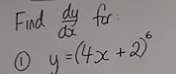 Find dy/dx for:
① y = (4x + 2)⁶